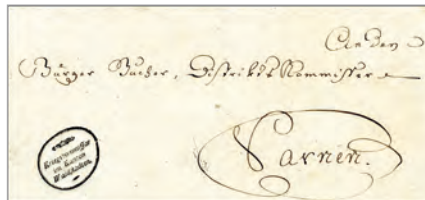 An den
Bürger Bucher, Distrikts Kommisser
Sarnen.
Kriegscommissar
im Kanton
Waldstätten.